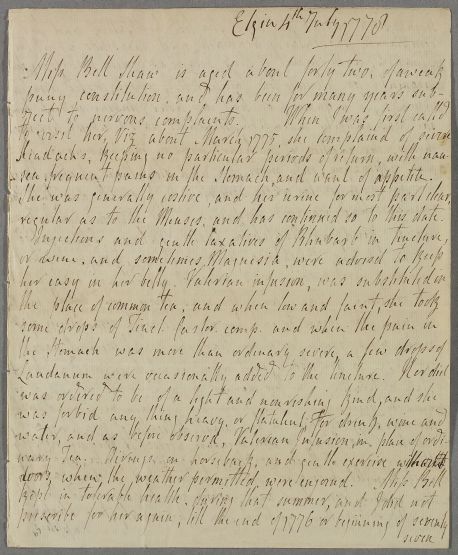 Elgin 4th July 1778
Miss Bell Shaw is aged about forty two, of a weak
puny constitution, and has been for many years sub-
ject to nervous complaints. When I was first call'd
to visit her, Viz about March 1775, she complained of severe
headachs, keeping no particular periods of return, with nau-
sea, frequent pains in the Stomach, and want of appetite.
She was generally costive, and her urine for most part clear,
regular as to the Menses, and has continued so to this date.
Injections and gentle laxatives of Rhubarb in tincture,
or wine, and sometimes Magnesia, were advised to keep
her easy in her belly. Valerian infusion, was substituted in
the place of common tea, and when low and faint, she took
some drops of Tinct Castor. comp. and when the pain in
the Stomach was more than ordinary severe, a few drops of
Laudanum were occasionally added to the tincture. Her diet
was ordered to be of a light and nourishing kind, and she
was forbid any thing heavy, or flatulent. For drink, wine and
water, and as before observed, Valerian Infusion, in place of ordi-
nary Tea. Airings on horseback, and gentle exercise without
doors, when the weather permitted, were enjoined. Miss Bell
kept in tolerable health during that summer, and I did not
prescribe for her again, till the end of 1776 or beginning of seventy
seven